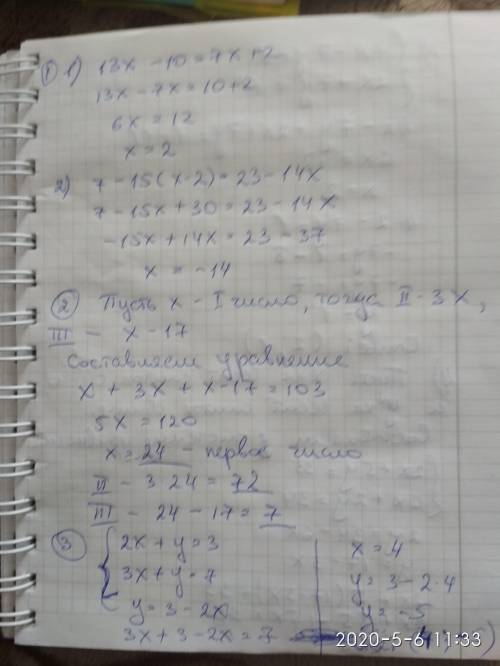 ① 1) 13x - 10 = 7x + 2
13x - 7x = 10 + 2
6x = 12
x = 2
2) 7 - 15(x - 2) = 23 - 14x
7 - 15x + 30 = 23 - 14x
-15x + 14x = 23 - 37
x = -14
② Пусть x - I число, тогда II - 3x,
III - x - 17
Составляем уравнение
x + 3x + x - 17 = 103
5x = 120
x = 24 - первое число
II - 3 24 = 72
III - 24 - 17 = 7
③ { 2x + y = 3
3x + y = 7
y = 3 - 2x
3x + 3 - 2x = 7
x = 4
y = 3 - 2·4
y = -5
2020-5-6 11:33